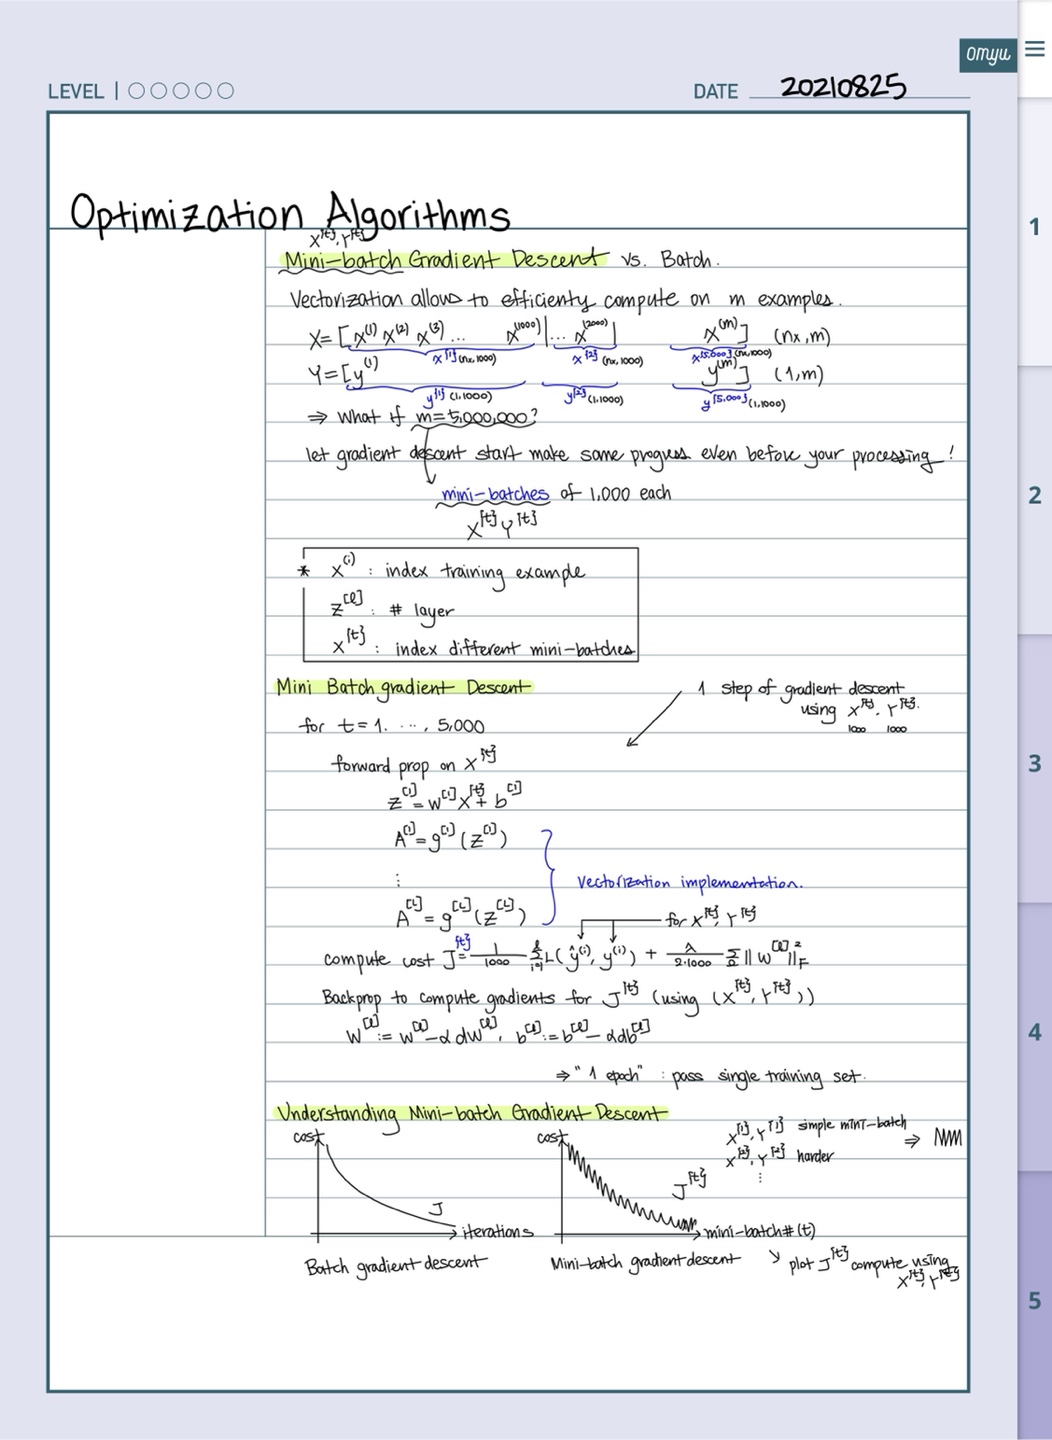 omyu
LEVEL | ○○○○○
DATE 20210825
Optimization Algorithms
X^{t}, Y^{t}
Mini-batch Gradient Descent vs. Batch.
Vectorization allows to efficienty compute on m examples.
X = [x^(1) x^(2) x^(3) ... x^(1000) | ... x^(2000) | x^(m)] (nx, m)
X^{1} (nx, 1000) X^{2} (nx, 1000) X^{5,000} (nx, 1000)
Y = [y^(1) y^(m)] (1, m)
y^{1} (1, 1000) y^{2} (1, 1000) y^{5,000} (1, 1000)
⇒ What if m = 5,000,000?
let gradient descent start make some progress even before your processing !
mini-batches of 1,000 each
X^{t} Y^{t}
* x^(i) : index training example
z^[l] : # layer
x^{t} : index different mini-batches
Mini Batch gradient Descent
1 step of gradient descent
using X^{t}, Y^{t}.
1000 1000
for t = 1, ..., 5,000
forward prop on X^{t}
Z^[1] = W^[1] X^{t} + b^[1]
A^[1] = g^[1] (Z^[1])
⋮
Vectorization implementation.
A^[L] = g^[L] (Z^[L])
for X^{t}, Y^{t}
compute cost J^{t} = 1/1000 Σ_{i=1}^{l} L(ŷ^(i), y^(i)) + λ/2·1000 Σ_l ||W^[l]||²_F
Backprop to compute gradients for J^{t} (using (X^{t}, Y^{t}))
W^[l] := W^[l] - α dW^[l], b^[l] := b^[l] - α db^[l]
⇒ "1 epoch" : pass single training set.
Understanding Mini-batch Gradient Descent
cost
J
iterations
Batch gradient descent
cost
J^{t}
mini-batch # (t)
Mini-batch gradient descent
X^{1}, Y^{1} simple mini-batch
X^{2}, Y^{2} harder
⋮
⇒
plot J^{t} compute using
X^{t}, Y^{t}
1
2
3
4
5